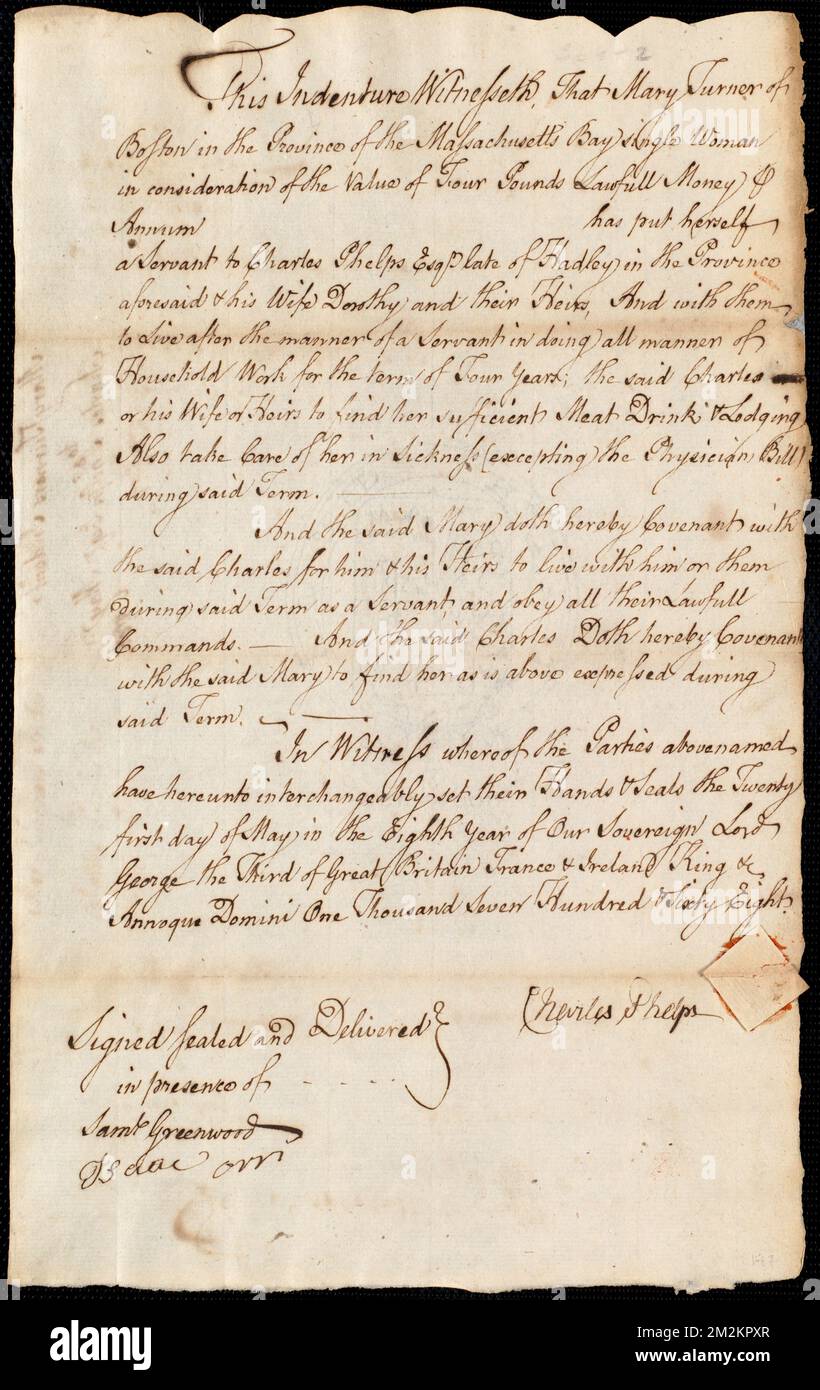 This Indenture Witnesseth, That Mary Turner of
Boston in the Province of the Massachusetts Bay single Woman
in consideration of the Value of Four Pounds Lawfull Money ⅌
Annum has put herself
a Servant to Charles Phelps Esqr. late of Hadley in the Province
aforesaid & his Wife Dorothy and their Heirs, And with them
to Live after the manner of a Servant in doing all manner of
Household Work for the term of Four Years; the said Charles
or his Wife or Heirs to find her sufficient Meat Drink & Lodging
Also take Care of her in Sickness (excepting the Physician Bill)
during said Term.
And the said Mary doth hereby Covenant with
the said Charles for him & his Heirs to live with him or them
During said Term as a Servant, and obey all their Lawfull
Commands. — And the said Charles Doth hereby Covenant
with the said Mary to find her as is above expressed during
said Term.
In Witness whereof the Parties abovenamed
have hereunto interchangeably set their Hands & Seals the Twenty
first day of May in the Eighth Year of Our Sovereign Lord
George the Third of Great Britain France & Ireland King &c
Annoque Domini One Thousand Seven Hundred & Sixty Eight.
Charles Phelps
Signed Sealed and Delivered
in presence of
Saml. Greenwood
Isaac Orr
alamy
Image ID: 2M2KPXR
www.alamy.com